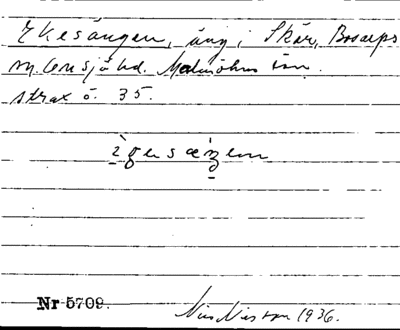 Ekesängen, äng i Skär, Bosarps
sn. Onsjö hd. Malmöhus län.
strax ö. 35.
Nr 5709.
Nils Nilsson 1936.